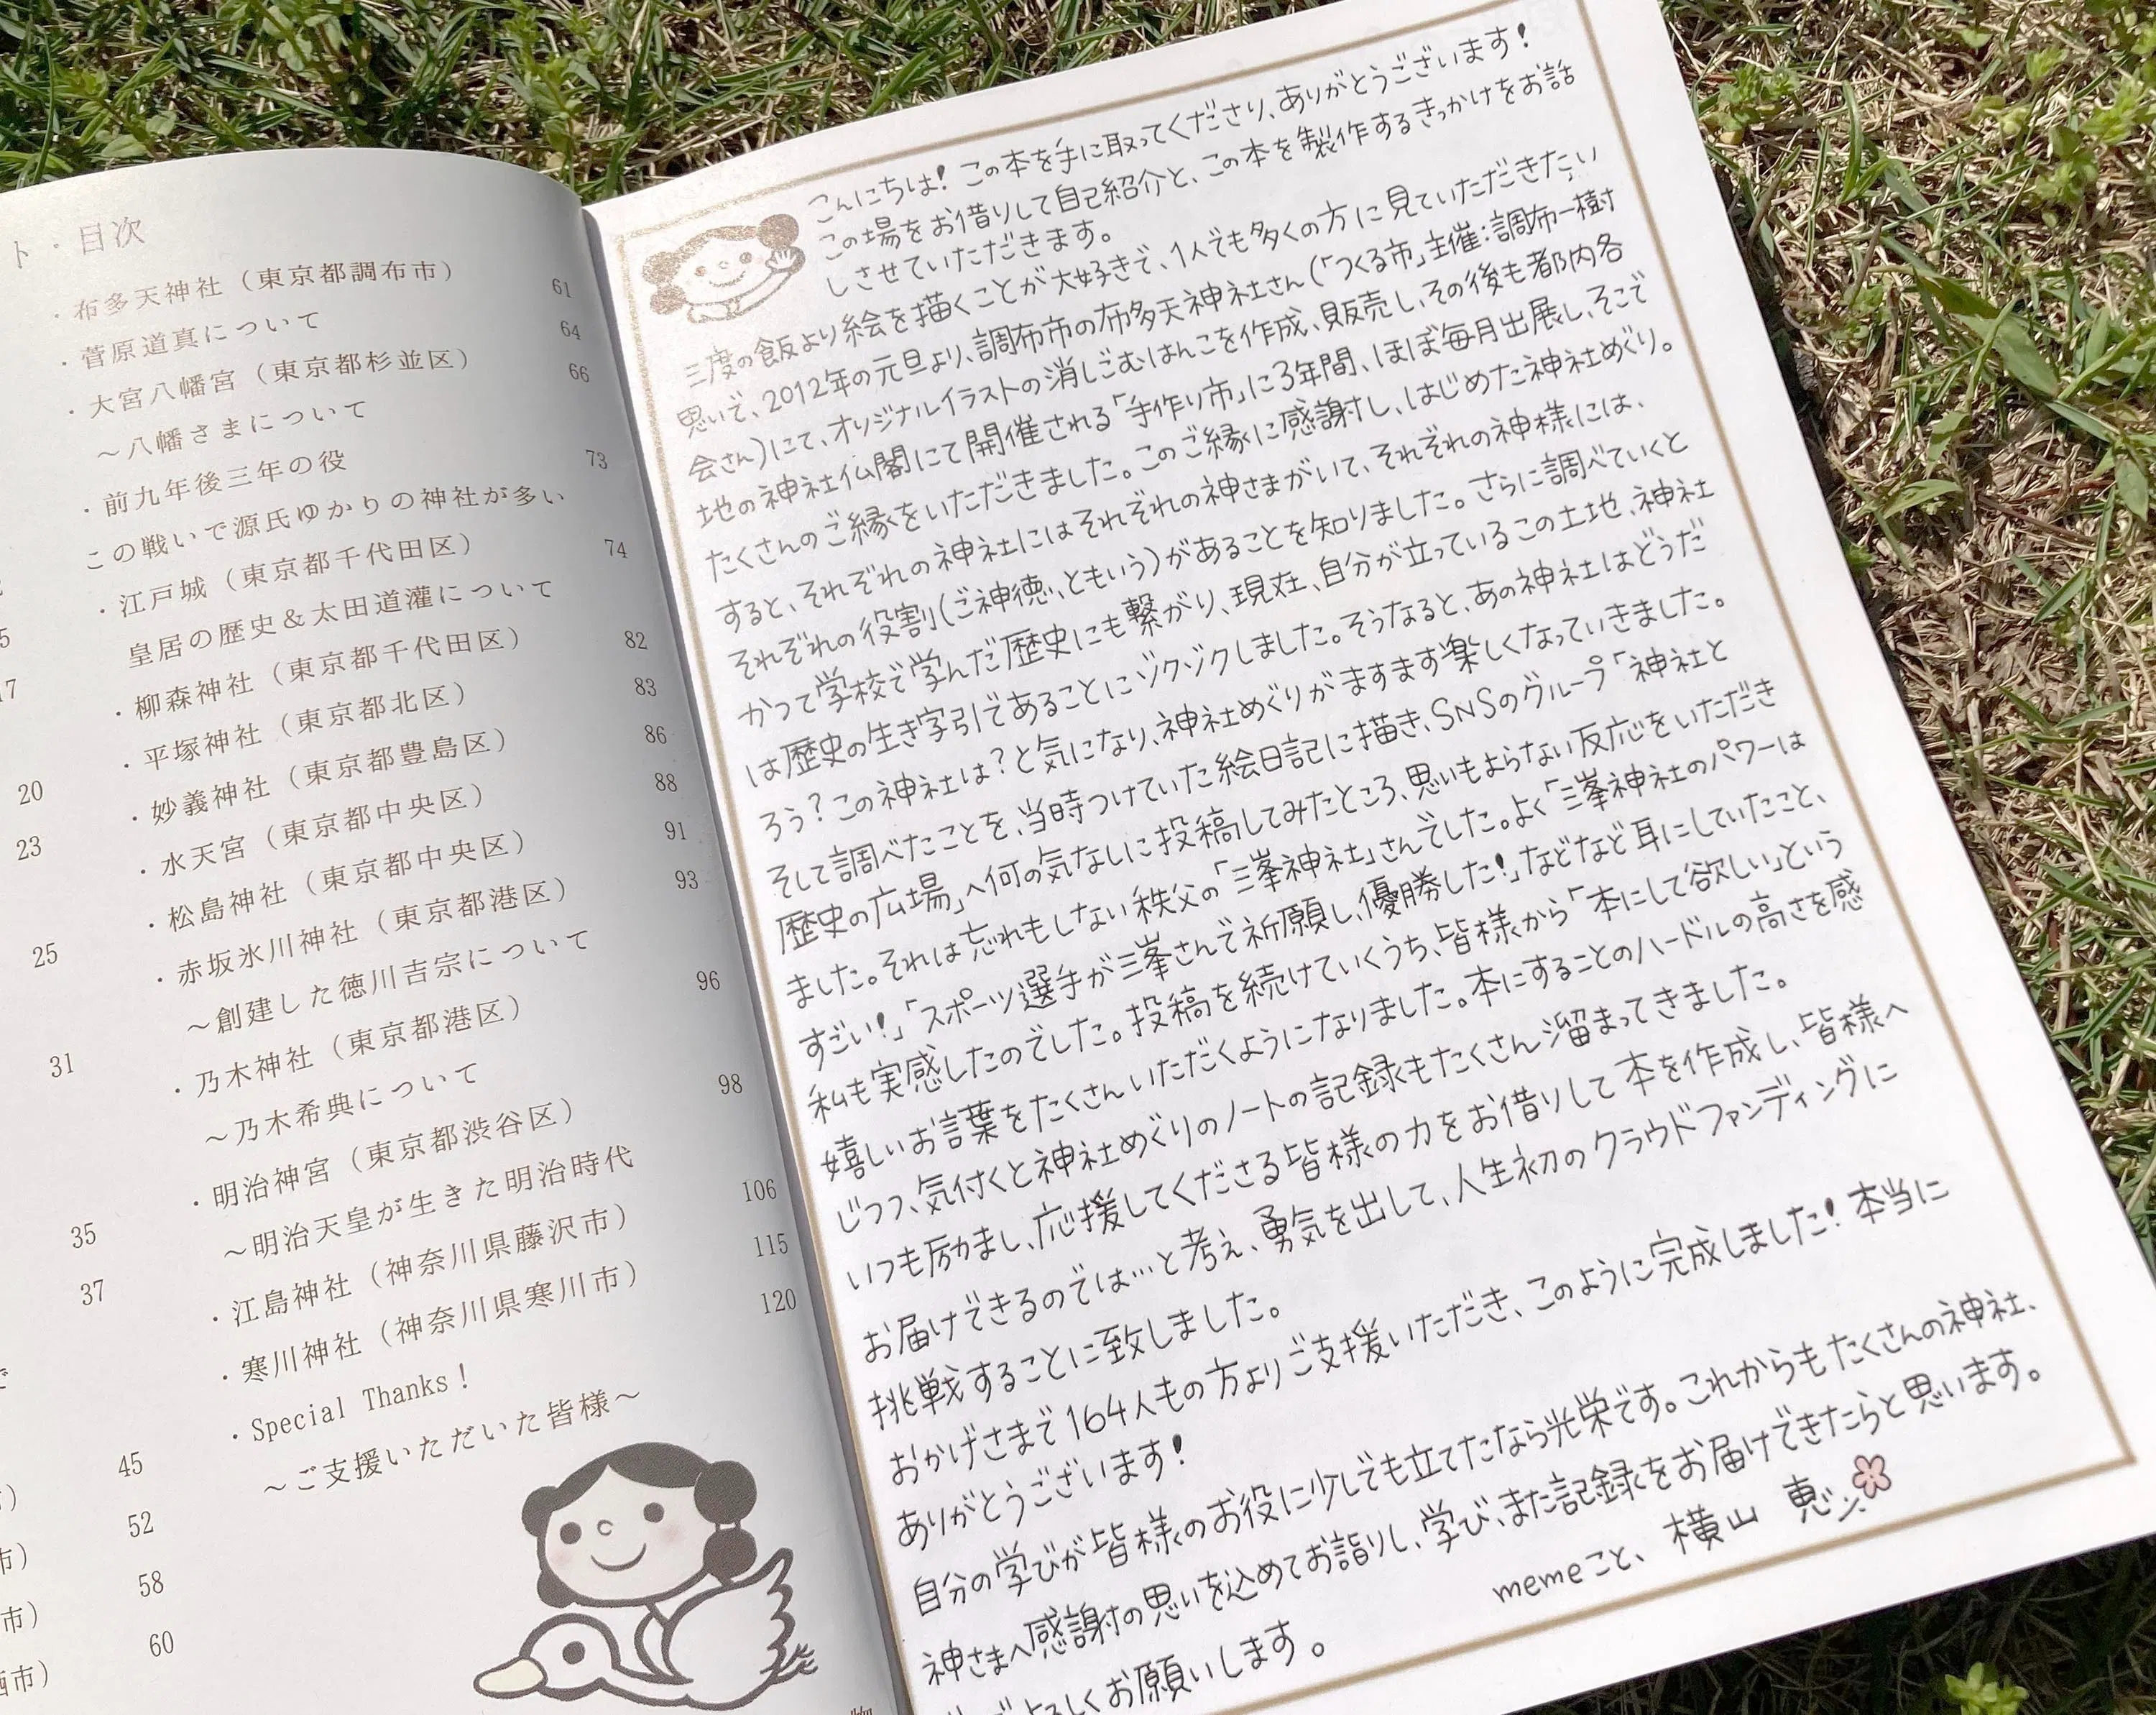 ト・目次
・布多天神社（東京都調布市） 61
・菅原道真について 64
・大宮八幡宮（東京都杉並区） 66
～八幡さまについて
・前九年後三年の役 73
この戦いで源氏ゆかりの神社が多い
・江戸城（東京都千代田区） 74
皇居の歴史＆太田道灌について
・柳森神社（東京都千代田区） 82
・平塚神社（東京都北区） 83
・妙義神社（東京都豊島区） 86
・水天宮（東京都中央区） 88
・松島神社（東京都中央区） 91
・赤坂氷川神社（東京都港区） 93
～創建した徳川吉宗について
・乃木神社（東京都港区） 96
～乃木希典について
・明治神宮（東京都渋谷区） 98
～明治天皇が生きた明治時代
・江島神社（神奈川県藤沢市） 106
・寒川神社（神奈川県寒川市） 115
・Special Thanks！ 120
～ご支援いただいた皆様～
20
23
25
31
35
37
45
52
58
60
こんにちは！この本を手に取ってくださり、ありがとうございます！
この場をお借りして自己紹介と、この本を製作するきっかけをお話
しさせていただきます。
三度の飯より絵を描くことが大好きで、1人でも多くの方に見ていただきたい
思いで、2012年の元旦より、調布市の布多天神社さん(「つくる市」主催:調布一樹
会さん)にて、オリジナルイラストの消しごむはんこを作成、販売し、その後も都内各
地の神社仏閣にて開催される「手作り市」に3年間、ほぼ毎月出展し、そこで
たくさんのご縁をいただきました。このご縁に感謝し、はじめた神社めぐり。
すると、それぞれの神社にはそれぞれの神さまがいて、それぞれの神様には、
それぞれの役割(ご神徳、ともいう)があることを知りました。さらに調べていくと
かつて学校で学んだ歴史にも繋がり、現在、自分が立っているこの土地、神社
は歴史の生き字引であることにゾクゾクしました。そうなると、あの神社はどうだ
ろう？この神社は？と気になり、神社めぐりがますます楽しくなっていきました。
そして調べたことを、当時つけていた絵日記に描き、SNSのグループ「神社と
歴史の広場」へ何の気なしに投稿してみたところ、思いもよらない反応をいただき
ました。それは忘れもしない秩父の「三峯神社」さんでした。よく「三峯神社のパワーは
すごい！」「スポーツ選手が三峯さんで祈願し、優勝した！」などなど耳にしていたこと、
私も実感したのでした。投稿を続けていくうち、皆様から「本にして欲しい」という
嬉しいお言葉をたくさんいただくようになりました。本にすることのハードルの高さを感
じつつ、気付くと神社めぐりのノートの記録もたくさん溜まってきました。
いつも励まし、応援してくださる皆様の力をお借りして本を作成し、皆様へ
お届けできるのでは…と考え、勇気を出して、人生初のクラウドファンディングに
挑戦することに致しました。
おかげさまで164人もの方よりご支援いただき、このように完成しました！本当に
ありがとうございます！
自分の学びが皆様のお役に少しでも立てたなら光栄です。これからもたくさんの神社、
神さまへ感謝の思いを込めてお詣りし、学び、また記録をお届けできたらと思います。
よろしくお願いします。
memeこと、横山 恵